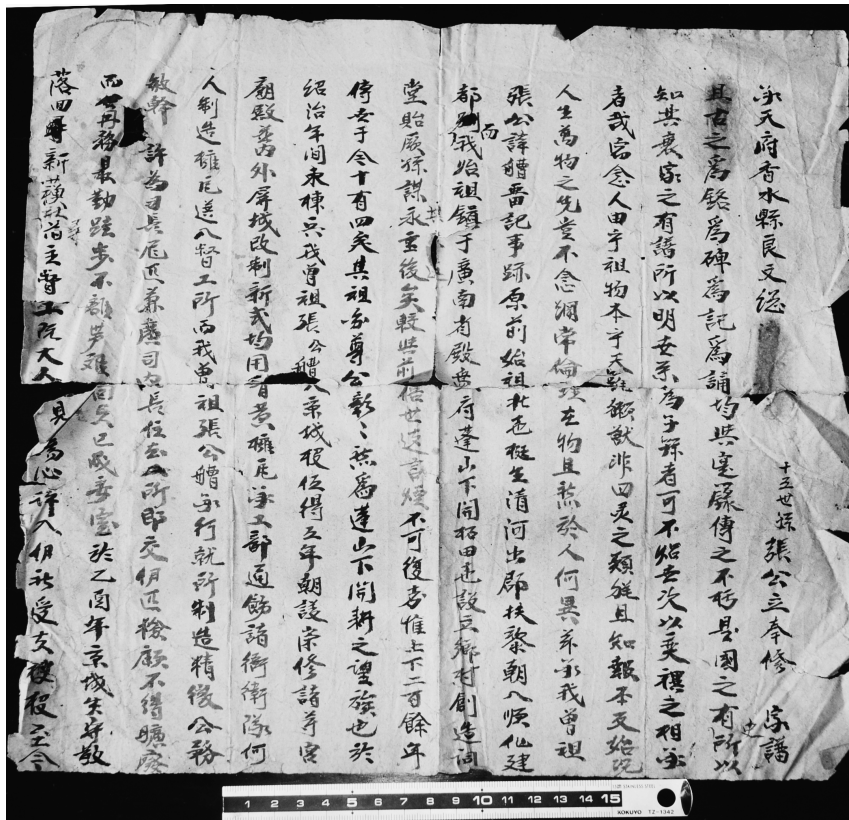 承天府香水縣良文總
十五世孫 張公立奉修 家譜
且古之爲銘爲碑爲記爲誦均與寔錄傳之不朽是國之有史所以
知其衰家之有譜所以明世系為子孫者可不紹世次以奕禩之相承
者哉窃念人由乎祖物本乎天雖獺獸非四灵之類能且知報本反始况
人生萬物之先豈不念綱常倫理在物且然於人何異茲承我曾祖
張公諱艚畨記事跡原前始祖北邑挺生清河出郡扶黎朝入順化建
都而我始祖鎮于廣南省殿盤府蓬山下開拓田宅設立鄉村創造詞
堂貽厥孫謀永垂後矣較與前偕世遠言煙不可復考惟上下二百餘年
傳世于今十有四矣其祖亦尊公彰〻然爲蓬山下開耕之望族也於
紹治年間永棟只我曾祖張公艚入京城役伍得五年朝議崇修諸尊宮
廟殿舊外屏城改制新式均用青黃𤮄瓦承工部通飭諸衛衛隊何
人制造𤮄瓦送入督工所而我曾祖張公艚承行就所制造精微公務
敏幹 許為司長瓦匠兼廣司匠長住在所即交 匠檢顧不得曠廢
而公再務最勤跬步不 勞艱同矣已成 於乙酉年京城失守散
落回尋新 主督工阮大人 見為心許入 社受支復役至今
1 2 3 4 5 6 7 8 9 10 11 12 13 14 15
KOKUYO TZ-1342